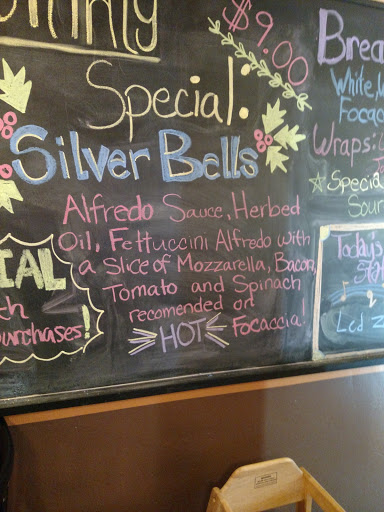 Special:
$9.00
Silver Bells
Alfredo Sauce, Herbed
Oil, Fettuccini Alfredo with
a Slice of Mozzarella, Bacon,
Tomato and Spinach
recomended on
HOT Focaccia!
IAL
purchases!
White,
Focac
Wraps:
Special
Sour
Today's
Led Z